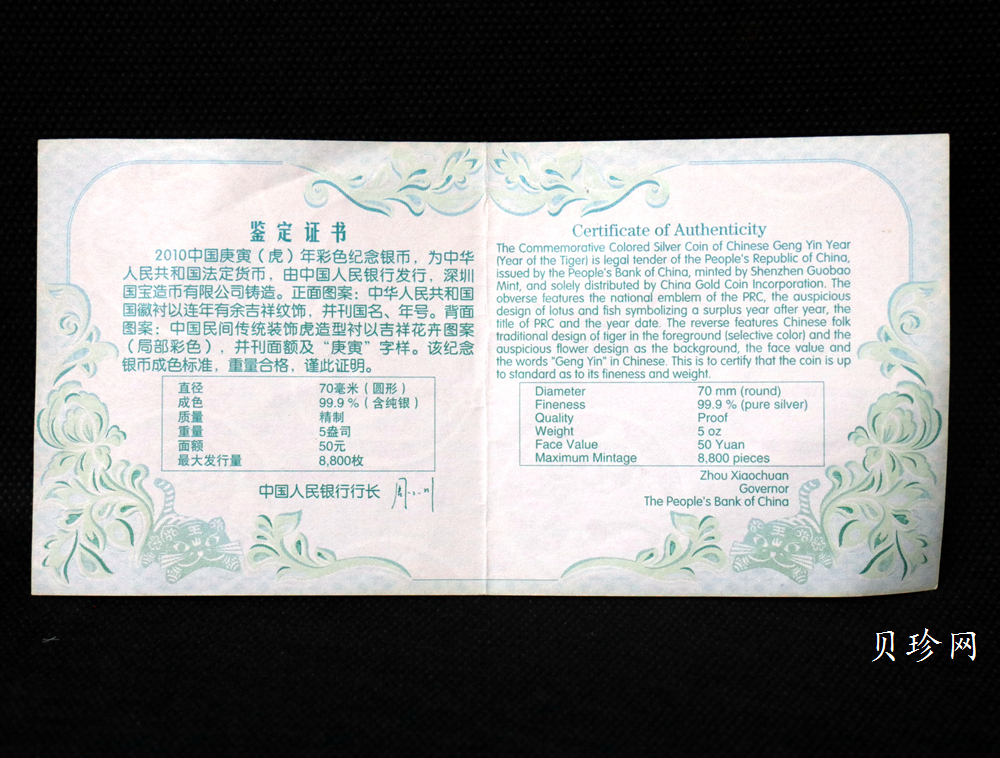 鉴定证书
2010中国庚寅（虎）年彩色纪念银币，为中华
人民共和国法定货币，由中国人民银行发行，深圳
国宝造币有限公司铸造。正面图案：中华人民共和国
国徽衬以连年有余吉祥纹饰，并刊国名、年号。背面
图案：中国民间传统装饰虎造型衬以吉祥花卉图案
（局部彩色），并刊面额及“庚寅”字样。该纪念
银币成色标准，重量合格，谨此证明。
直径 70毫米（圆形）
成色 99.9 %（含纯银）
质量 精制
重量 5盎司
面额 50元
最大发行量 8,800枚
中国人民银行行长
Certificate of Authenticity
The Commemorative Colored Silver Coin of Chinese Geng Yin Year
(Year of the Tiger) is legal tender of the People's Republic of China,
issued by the People's Bank of China, minted by Shenzhen Guobao
Mint, and solely distributed by China Gold Coin Incorporation. The
obverse features the national emblem of the PRC, the auspicious
design of lotus and fish symbolizing a surplus year after year, the
title of PRC and the year date. The reverse features Chinese folk
traditional design of tiger in the foreground (selective color) and the
auspicious flower design as the background, the face value and
the words "Geng Yin" in Chinese. This is to certify that the coin is up
to standard as to its fineness and weight.
Diameter 70 mm (round)
Fineness 99.9 % (pure silver)
Quality Proof
Weight 5 oz
Face Value 50 Yuan
Maximum Mintage 8,800 pieces
Zhou Xiaochuan
Governor
The People's Bank of China
贝珍网